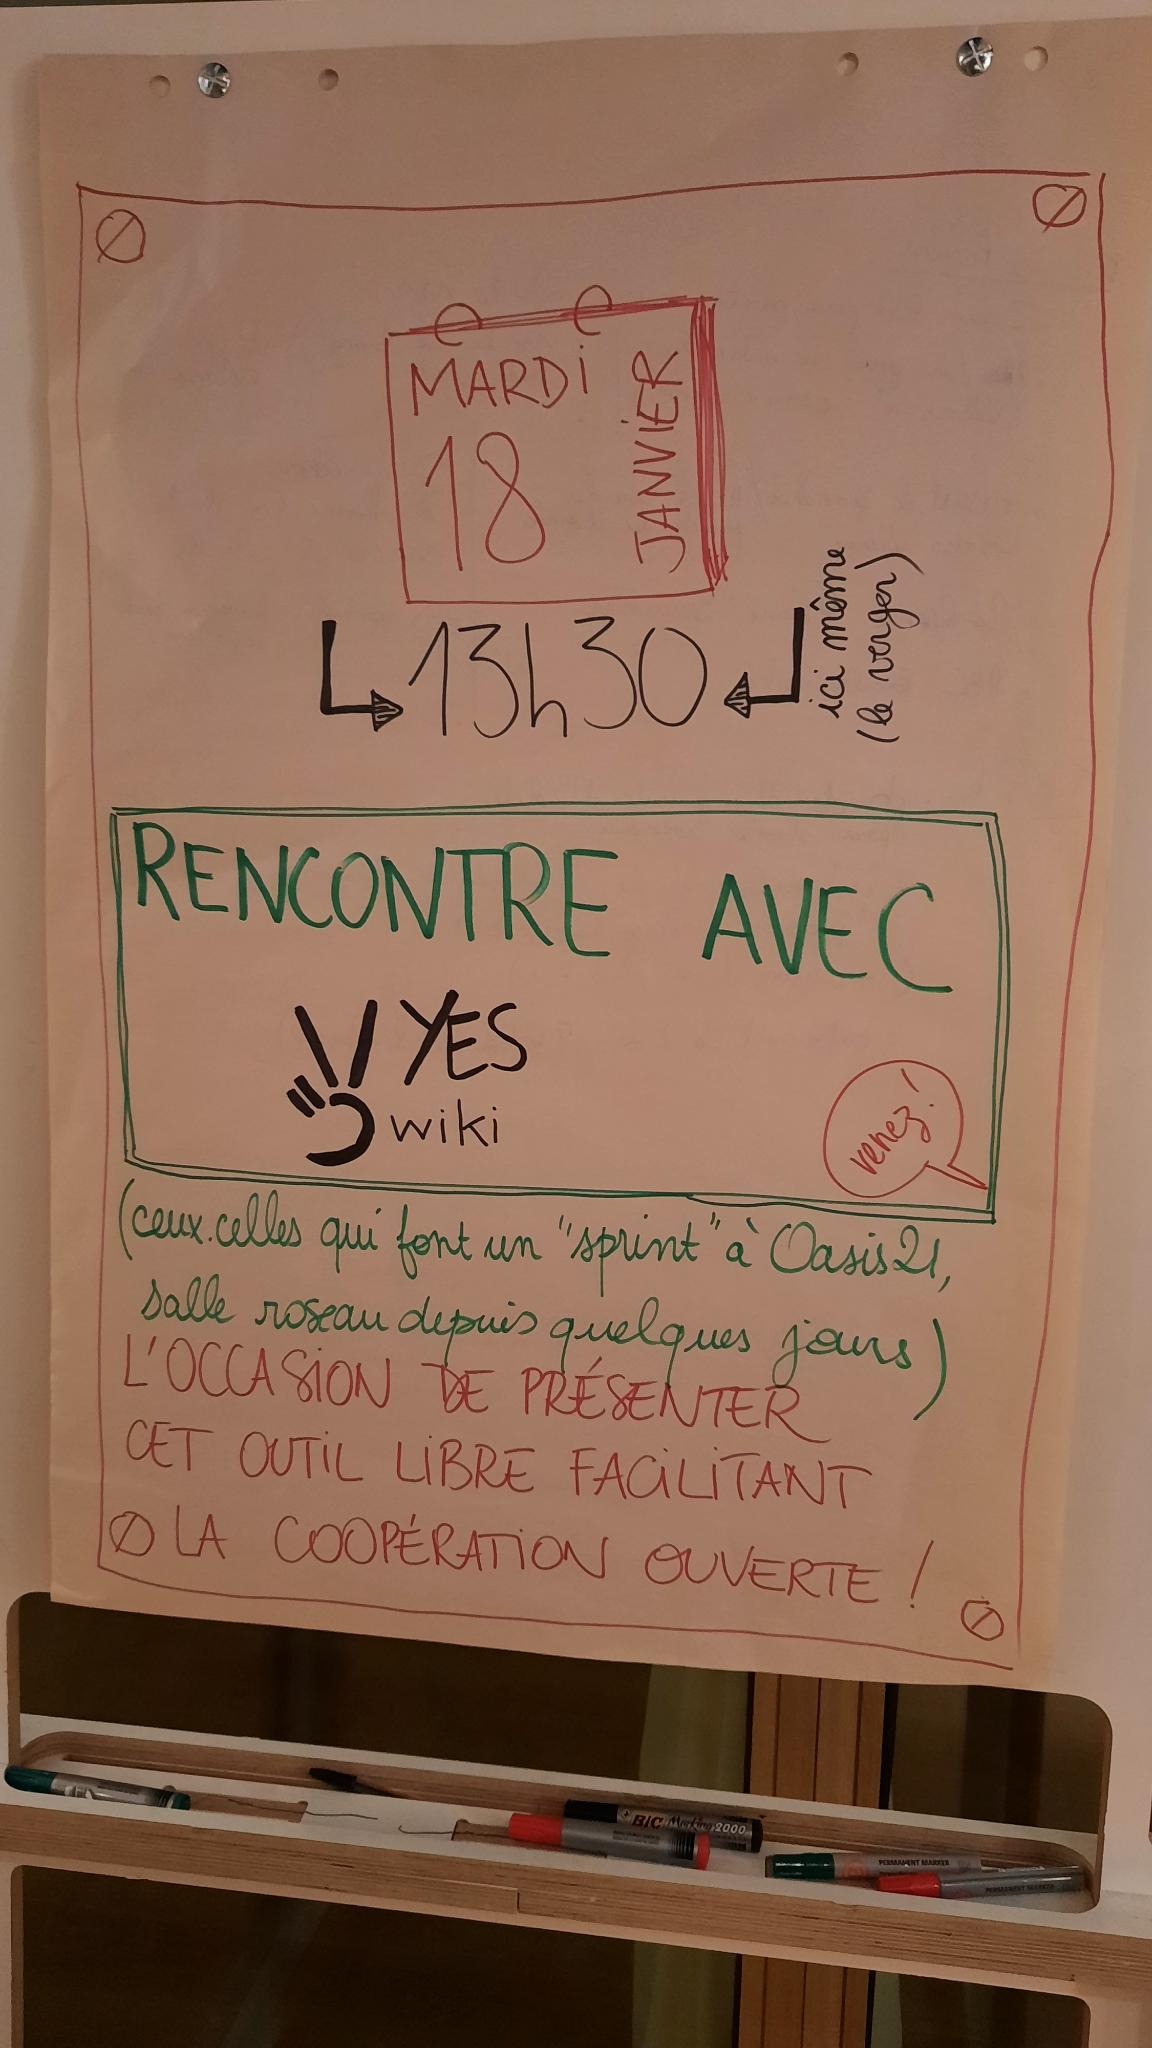 MARDI
18
JANVIER
13h30
ici même
(le verger)
RENCONTRE AVEC
YES
wiki
venez!
(ceux.celles qui font un "sprint" à Oasis21,
salle roseau depuis quelques jours)
L'OCCASION DE PRÉSENTER
CET OUTIL LIBRE FACILITANT
LA COOPÉRATION OUVERTE !
BIC Marking 2000
PERMANENT MARKER
PERMANENT MARKER